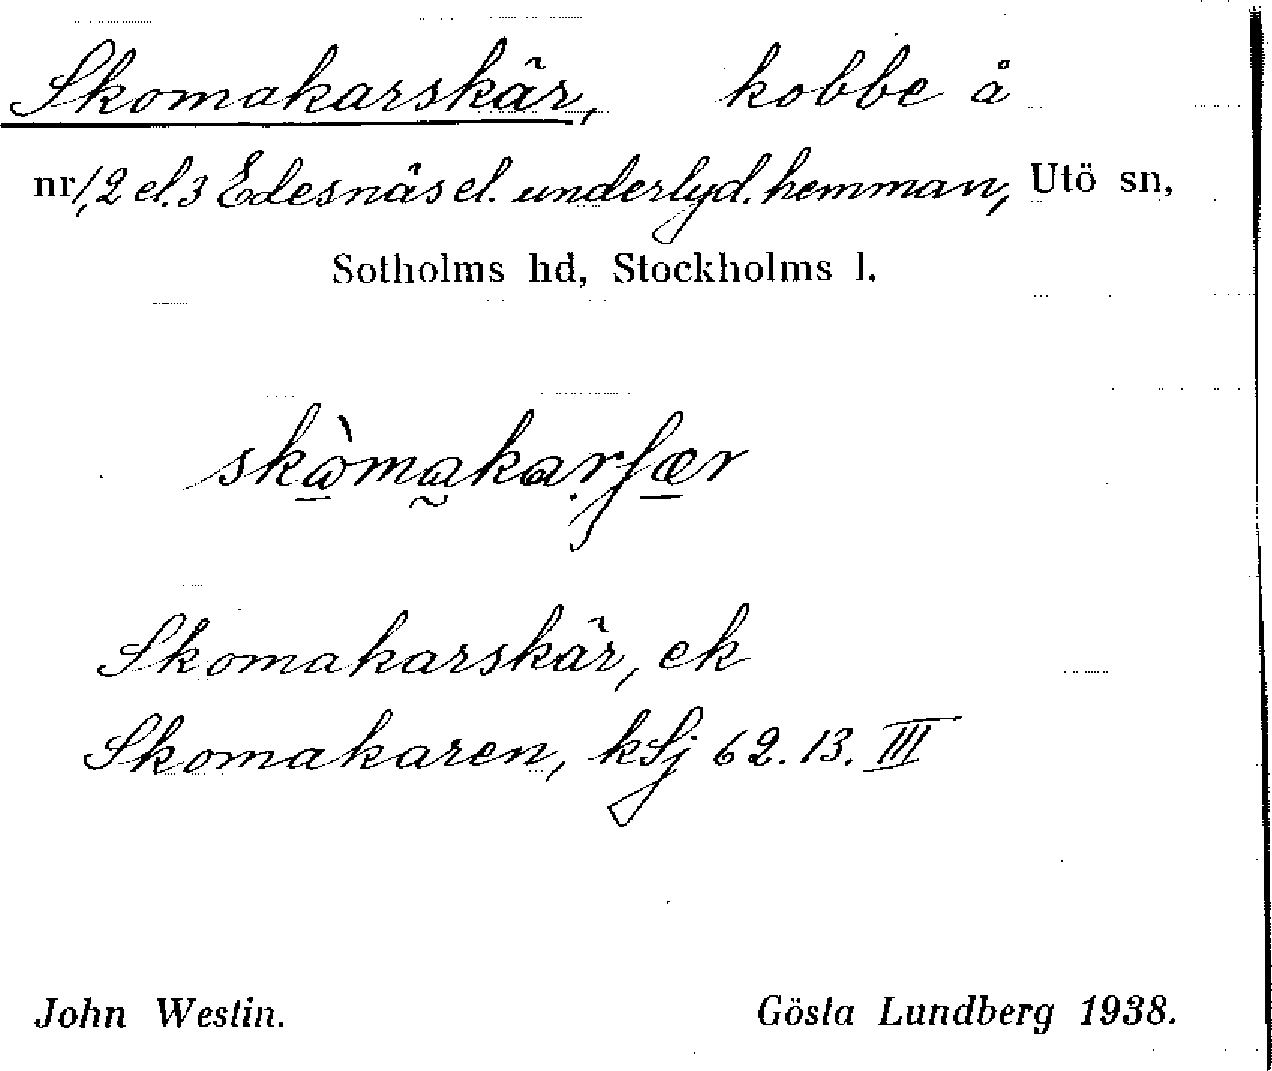 Skomakarskär, kobbe å
nr 1, 2 el. 3 Edesnäs el. underlyd. hemman, Utö sn,
Sotholms hd, Stockholms l.
Skomakarskär, ek
Skomakaren, kSj 62. 13. III
John Westin. Gösta Lundberg 1938.